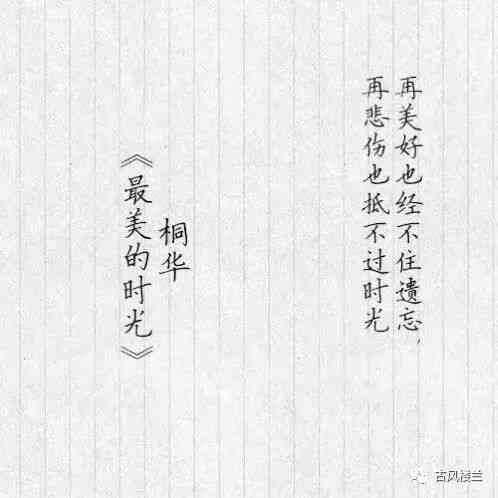 再美好也经不住遗忘，
再悲伤也抵不过时光
桐华
《最美的时光》
古风楼兰